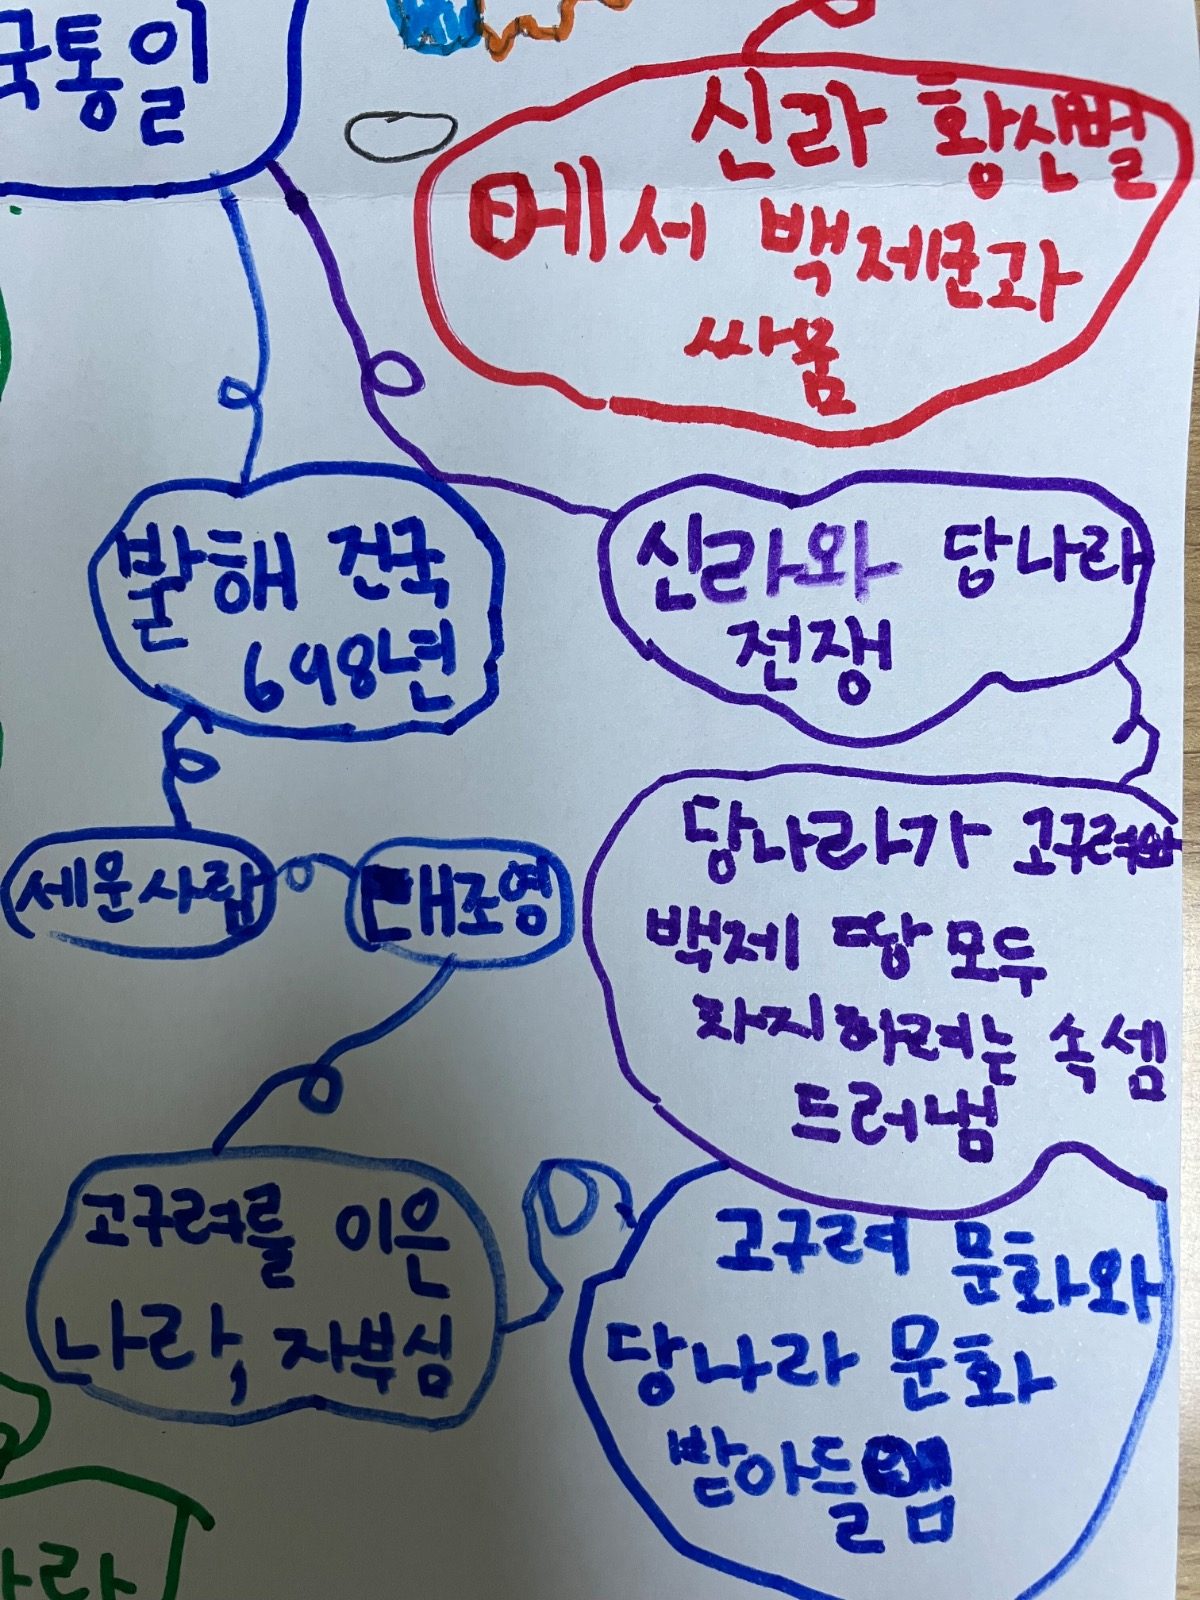 국통일
신라 황산벌
에서 백제군과
싸움
발해 건국
698년
신라와 당나라
전쟁
세운사람
대조영
당나라가 고구려와
백제 땅 모두
차지하려는 속셈
드러냄
고구려를 이은
나라, 자부심
고구려 문화와
당나라 문화
받아들엠
나라